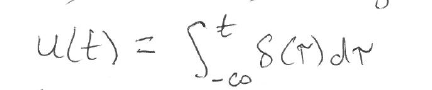 u(t) = ∫_{-∞}^{t} δ(τ) dτ